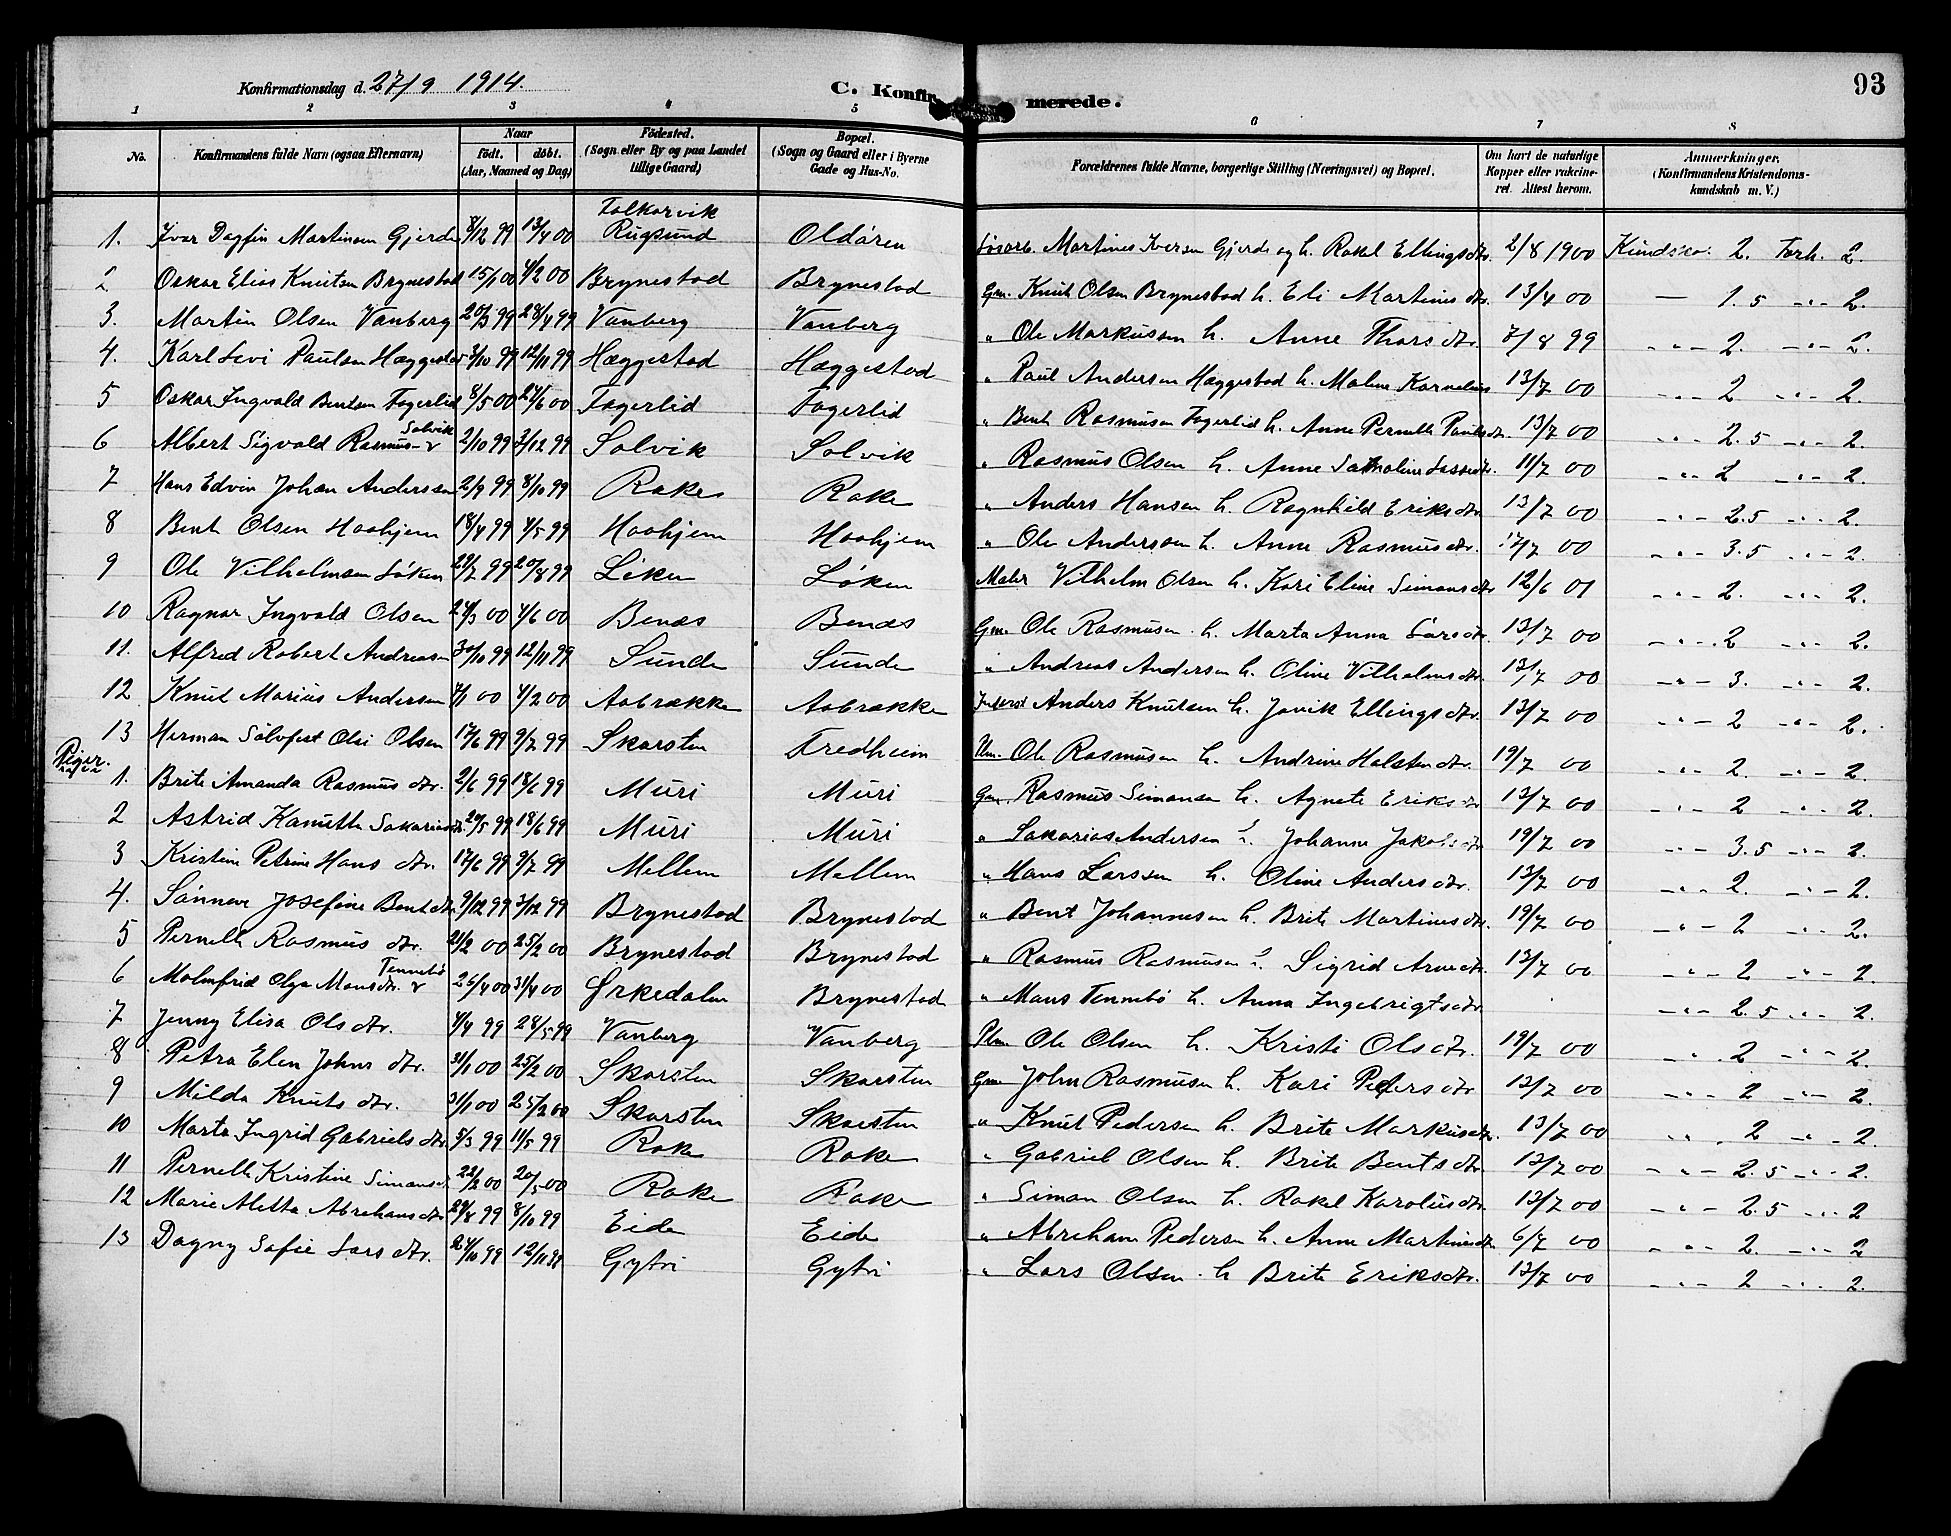 Konfirmationsdag d. 27/9 1914.
C. Konfirmerede.
93
1 2 3 4 5 6 7 8
No.
Konfirmandens fulde Navn (ogsaa Efternavn)
Naar
født. døbt.
(Aar, Maaned og Dag)
Fødested.
(Sogn eller By og paa Landet
tillige Gaard)
Bopæl.
(Sogn og Gaard eller i Byerne
Gade og Hus-No.
Forældrenes fulde Navne, borgerlige Stilling (Næringsvei) og Bopæl.
Om havt de naturlige
Kopper eller vakcine-
ret. Attest herom.
Anmærkninger.
(Konfirmandens Kristendoms-
kundskab m. V.)
Falkarvik
1. Ivar Dagfin Martinsen Gjerde 8/12 99 13/4 00 Rugsund Oldøren Martines Iversen Gjerde og h. Rakel Ellingsdtr. 2/8 1900 Kundska: 2. Forh. 2.
2 Oskar Elias Knutsen Brynestad 15/1 00 4/2 00 Brynestad Brynestad Gm. Knut Olsen Brynestad h. Eli Martinusdtr. 13/4 00 — 1.5 -"- 2.
3. Martin Olsen Vanberg 20/3 99 28/4 99 Vanberg Vanberg " Ole Markussen h. Anne Thorsdtr. 7/8 99 -"- 2. -"- 2.
4. Karl Levi Paulsen Hæggestad 3/10 99 12/11 99 Hæggestad Hæggestad " Paul Andersen Hæggestad h. Malene Kornelius 13/7 00 -"- 2 -"- 2.
5 Oskar Ingvald Bentsen Fagerlid 8/5 00 24/6 00 Fagerlid Fagerlid " Bent Rasmusen Fagerlid h. Anne Pernelle Paulsdtr. 13/7 00 -"- 2.5 -"- 2.
Solvik
6 Albert Sigvald Rasmus- 2/10 99 3/12 99 Solvik Solvik " Rasmus Olsen h. Anne 11/7 00 -"- 2 -"- 2.
7 Hans Edvin Johan Andersen 2/9 99 8/10 99 Rake Rake " Anders Hansen h. Ragnhild Eriksdtr. 13/7 00 -"- 2.5 -"- 2.
8 Bent Olsen Haahjem 18/4 99 4/5 99 Haahjem Haahjem " Ole Andersen h. Anne Rasmusdtr. 00 -"- 3.5 -"- 2.
9 Ole Vilhelmsen Løken 29/7 99 20/8 99 Løken Løken Maler Vilhelm Olsen h. Kari Eline Simonsdtr 12/6 01 -"- 2. -"- 2.
10 Ragnar Ingvald Olsen 24/3 00 4/6 00 Benæs Benæs Gm. Ole Rasmusen h. Marta Anna Larsdtr. 13/7 00 -"- 2 -"- 2.
11. Alfred Robert Andreasen 30/10 99 12/11 99 Sunde Sunde " Andreas Andersen h. Oline Vilhelmsdtr. 13/7 00 -"- 3. -"- 2.
12 Knut Marius Andersen 7/1 00 4/2 00 Aabrække Aabrække Anders Knutsen h. Jovik Ellingsdtr. 13/7 00 -"- 2 -"- 2.
13 Herman Sølvfest Olai Olsen 17/6 99 9/7 99 Skarsten Fredheim Ole Rasmusen h. Andrine Halstendtr. 19/7 00 -"- 2. -"- 2.
Piger.
1. Brite Amanda Rasmusdtr. 2/6 99 18/6 99 Muri Muri Gm. Rasmus Simonsen h. Agnete Eriksdtr 13/7 00 -"- 2 -"- 2.
2 Astrid Kanutte Sakariasdtr. 20/5 99 18/6 99 Muri Muri " Sakarias Andersen h. Johanne Jakobsdtr 19/7 00 -"- 3.5 -"- 2.
3 Kristine Petrine Hansdtr. 17/6 99 9/7 99 Mellem Mellem " Hans Larssen h. Oline Andersdtr. 13/7 00 -"- 2. -"- 2.
4. Sønneve Josefine Bentsdtr. 9/12 99 3/12 99 Brynestad Brynestad " Bent Johannesen h. Brite Martinusdtr. 19/7 00 -"- 2 -"- 2.
5 Pernelle Rasmusdtr. 21/2 00 25/2 00 Brynestad Brynestad " Rasmus Rasmusen h. Sigrid Arnedtr. 13/7 00 -"- 2 -"- 2.
Tennebø
6 Malmfrid Olga Monsdtr. 26/4 00 31/4 00 Ørkedalen Brynestad " Mons Tennebø h. Anna Ingebrigtsdtr. -"- 2.5 -"- 2.
7 Jenny Elisa Olsdtr. 4/4 99 28/5 99 Vanberg Vanberg Ole Olsen h. Kristi Olsdtr. 19/7 00 -"- 2 -"- 2.
8 Petra Elen Johnsdtr. 31/1 00 25/2 00 Skarsten Skarsten Gm. John Rasmusen h. Kari Pedersdtr. 13/7 00 -"- 2 -"- 2.
9 Milda Knutsdtr. 31/1 00 25/2 00 Skarsten Skarsten " Knut Pedersen h. Brite Markusdtr. 13/7 00 -"- 2 -"- 2.
10 Marta Ingrid Gabrielsdtr 5/3 99 11/5 99 Rake Rake " Gabriel Olsen h. Brite Bentsdtr 13/7 00 -"- 2.5 -"- 2.
11 Pernelle Kristine Simonsdtr 22/2 00 20/5 00 Rake Rake " Simon Olsen h. Rakel Karolusdtr. 13/7 00 -"- 2.5 -"- 2
12 Marie Aletta Abrahamsdtr 29/8 99 8/10 99 Eide Eide " Abraham Pedersen h. Anne Martinusdtr 6/7 00 -"- 2. -"- 2
13 Dagny Sofie Larsdtr. 24/10 99 12/11 99 Gytri Gytri " Lars Olsen h Brite Eriksdtr. 13/7 00 -"- 2 -"- 2.